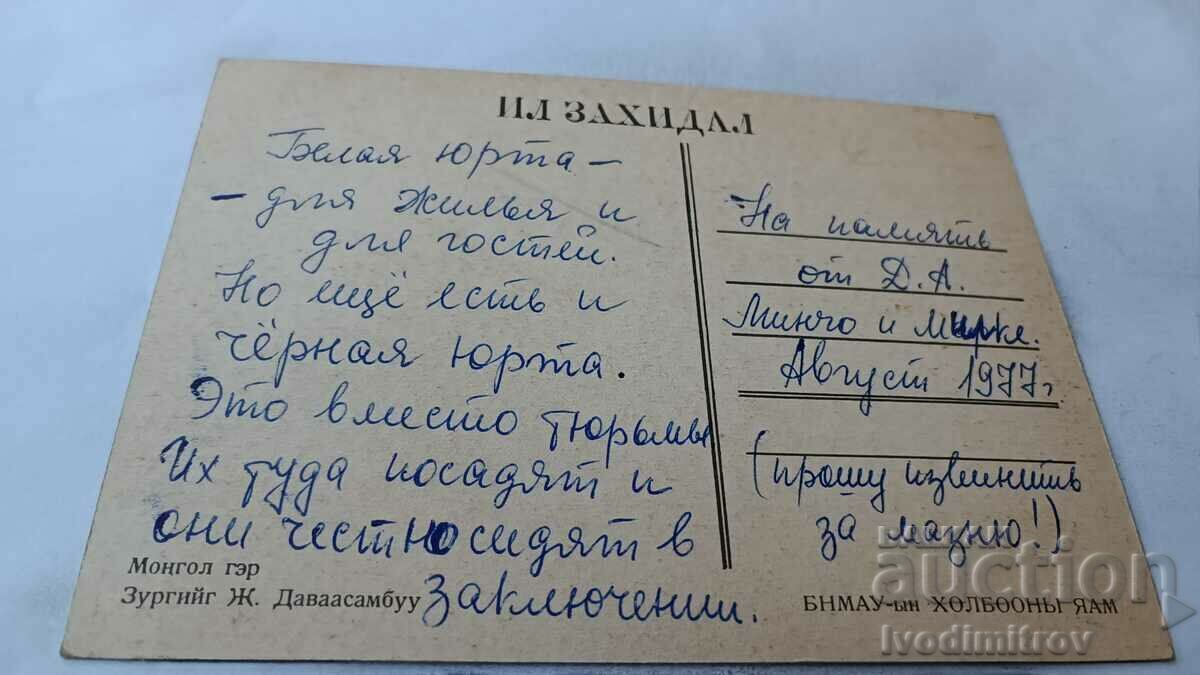 ИЛ ЗАХИДАЛ
Белая юрта –
– для жилья и
для гостей.
Но ещё есть и
чёрная юрта.
Это вместо тюрьмы
Их туда посадят и
они честно сидят в
заключении.
Монгол гэр
Зургийг Ж. Даваасамбуу
На память
от Д.А.
Минчо и Мирке.
Август 1977г.
(прошу извинить
за мазню!)
БНМАУ-ын ХОЛБООНЫ ЯАМ
auction
Ivodimitrov